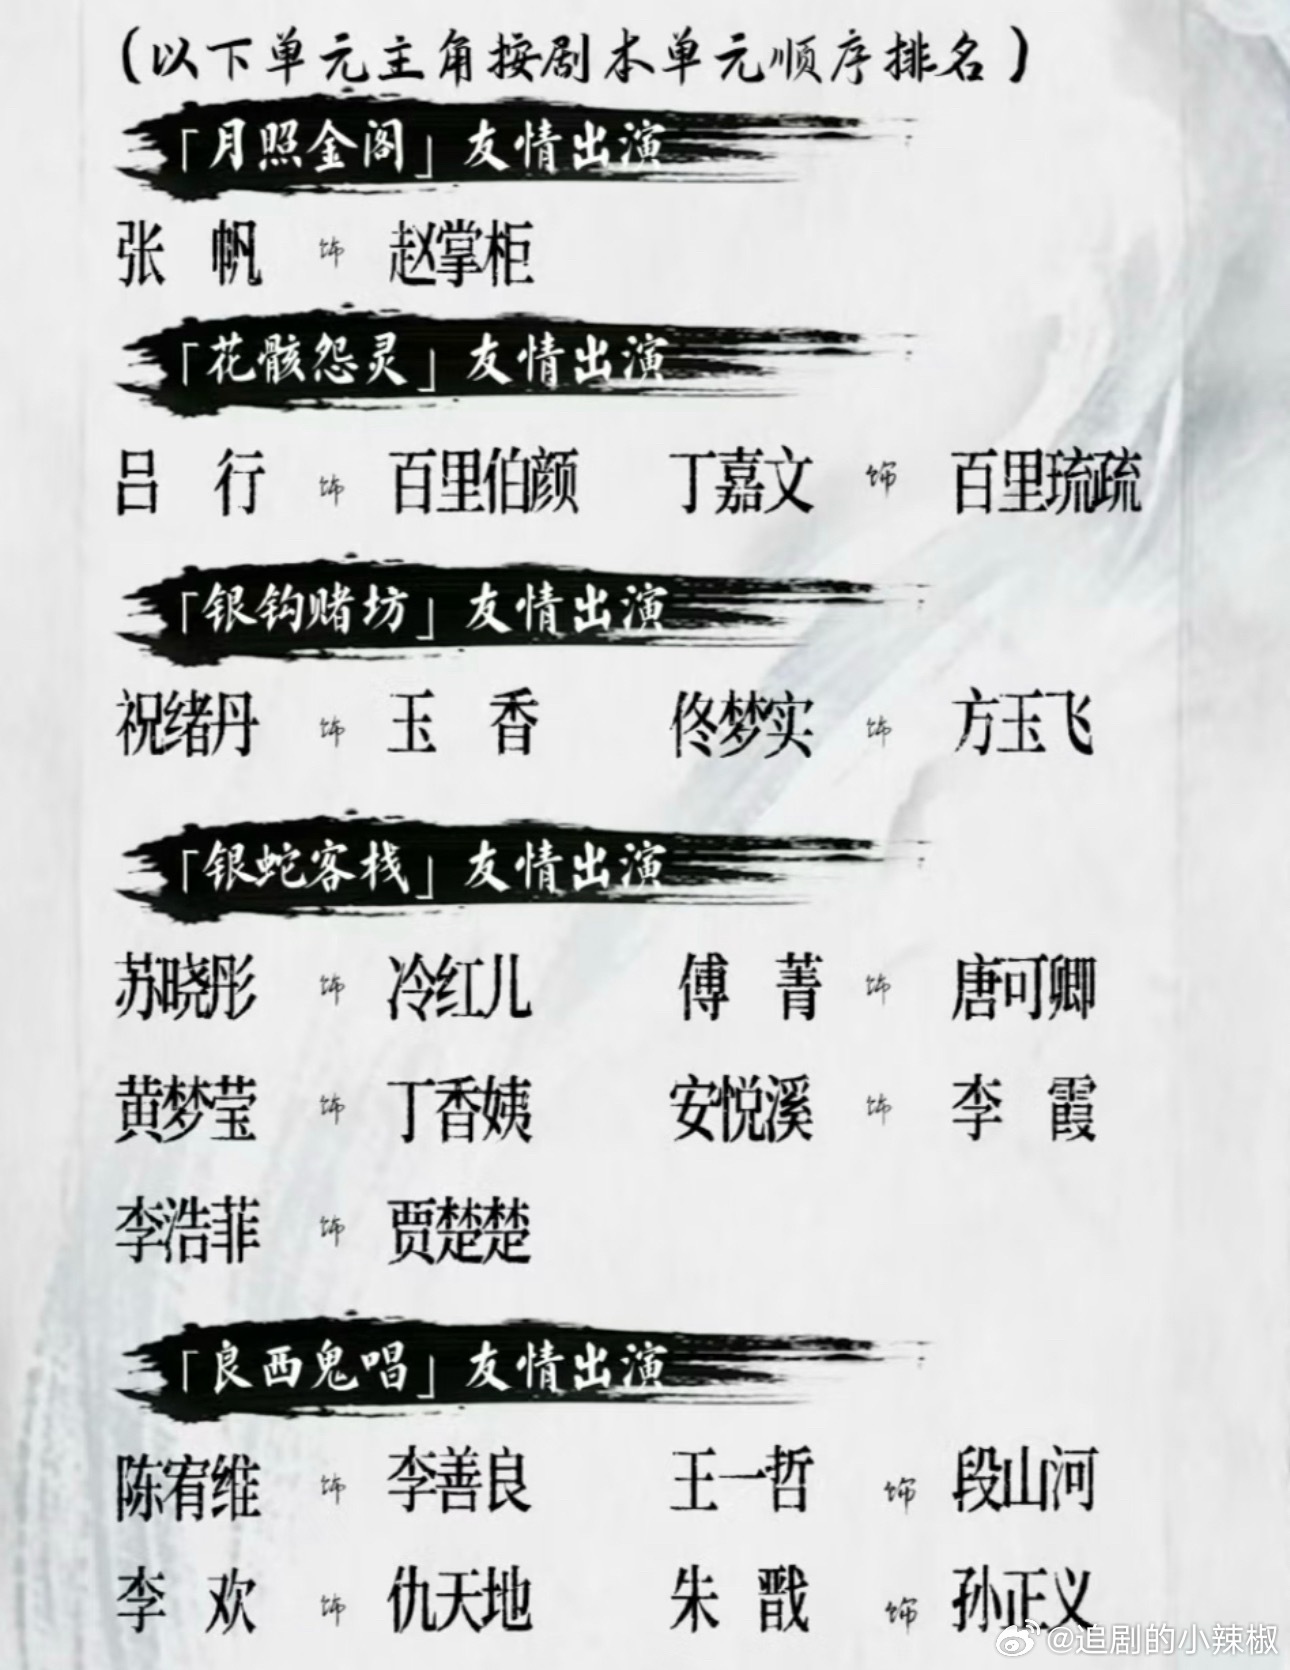 （以下单元主角按剧本单元顺序排名）
「月照金阁」友情出演
张 帆 饰 赵掌柜
「花骸怨灵」友情出演
吕 行 饰 百里伯颜 丁嘉文 饰 百里琉疏
「银钩赌坊」友情出演
祝绪丹 饰 玉 香 佟梦实 饰 方玉飞
「银蛇客栈」友情出演
苏晓彤 饰 冷红儿 傅 菁 饰 唐可卿
黄梦莹 饰 丁香姨 安悦溪 饰 李 霞
李浩菲 饰 贾楚楚
「良西鬼唱」友情出演
陈宥维 饰 李善良 王一哲 饰 段山河
李 欢 饰 仇天地 朱 戬 饰 孙正义
@追剧的小辣椒